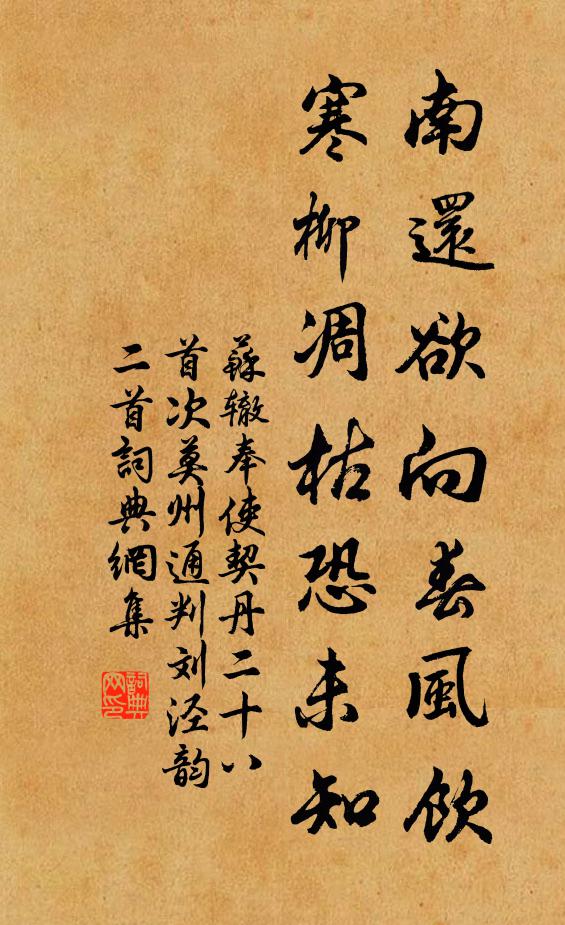 南還欲向春風飲
寒柳凋枯恐未知
蘇辙奉使契丹二十八
首次莫州通判刘泾韵
二首詞典網集
詞典
网印